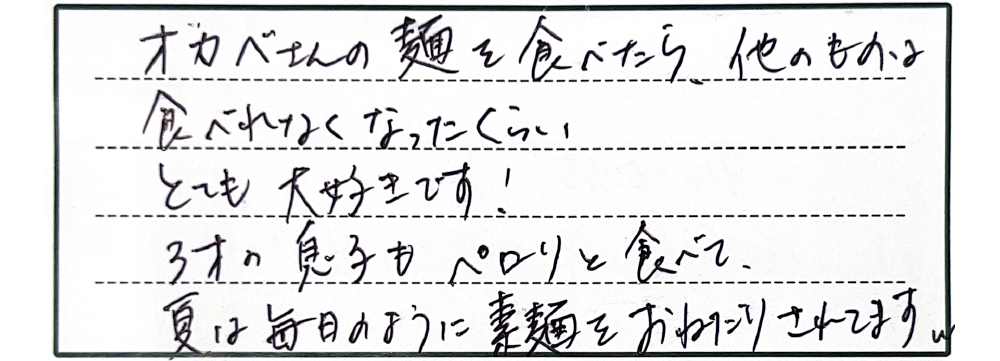 オカベさんの麺を食べたら、他のものは
食べれなくなったくらい
とても大好きです!
3才の息子もペロリと食べて、
夏は毎日のように素麺をおねだりされてますw